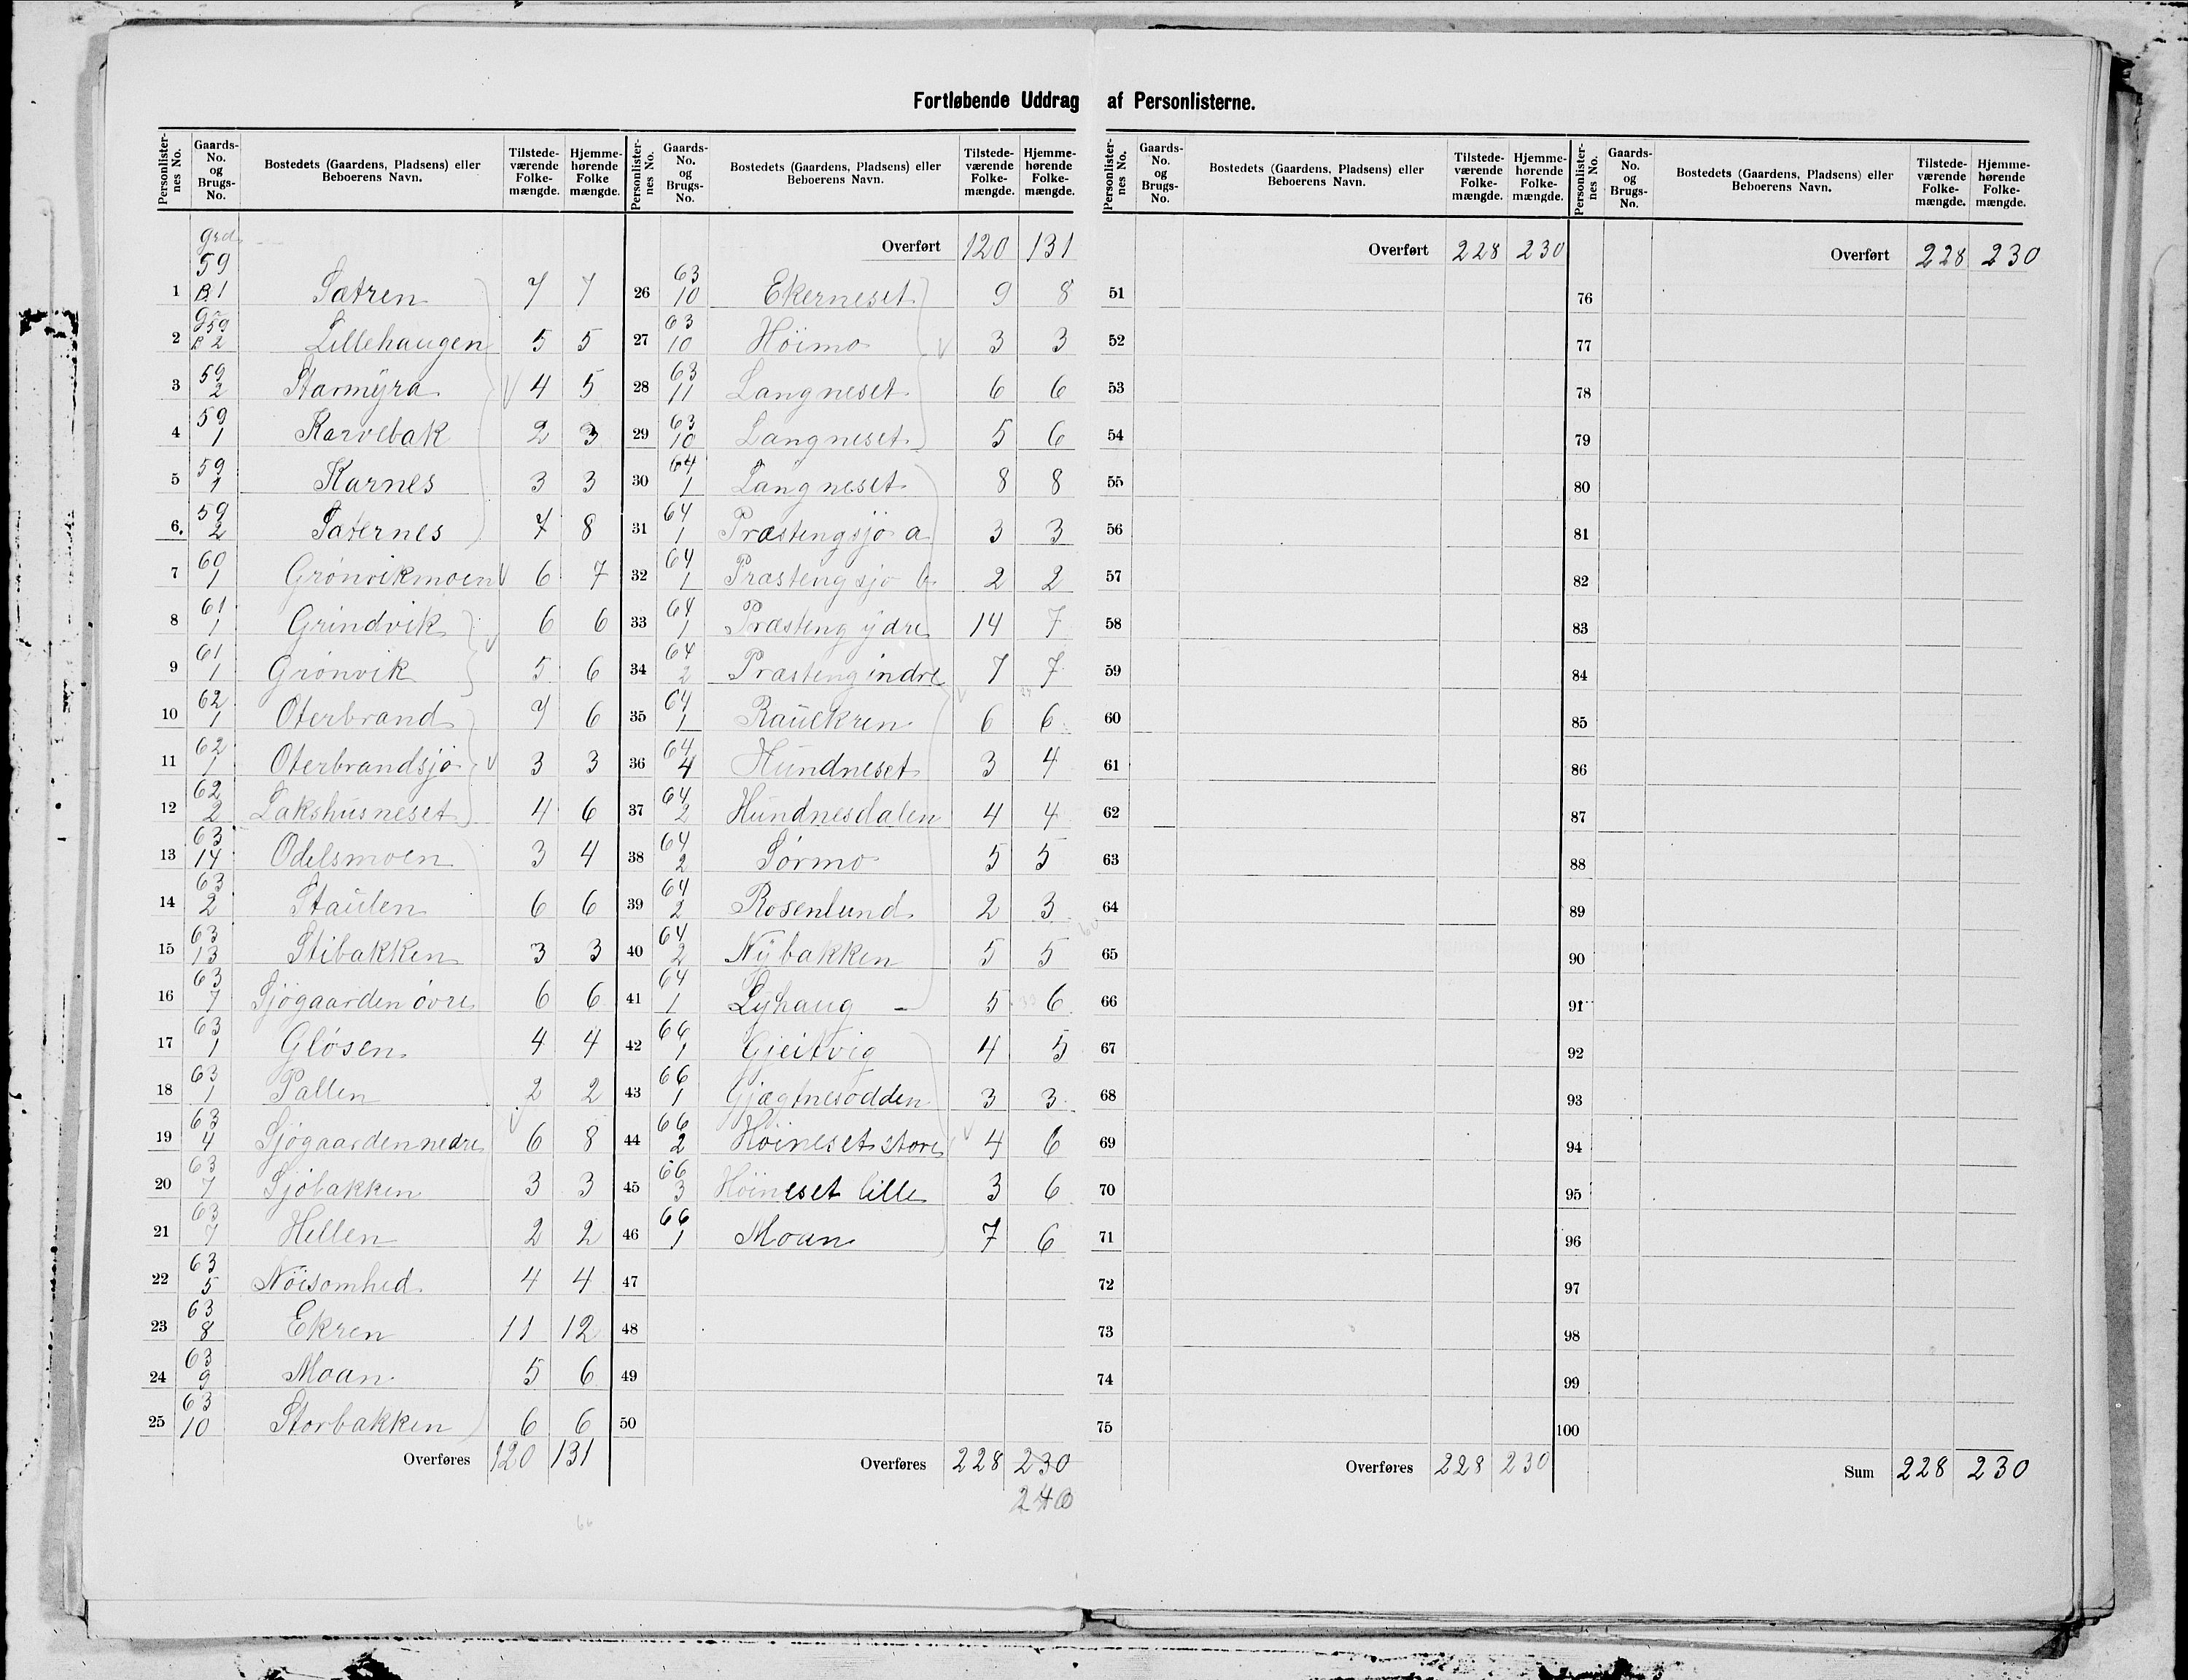 Fortløbende Uddrag af Personlisterne.
Personlisternes No. Gaards-No. og Brugs-No. Bostedets (Gaardens, Pladsens) eller Beboerens Navn. Tilstedeværende Folkemængde. Hjemmehørende Folkemængde.
1 Grd. 59 B. 1 Sætren 7 7
2 G. 59 B 2 Lillehaugen 5 5
3 59 2 Starmÿra 4 5
4 59 1 Karvebak 2 3
5 59 1 Karnes 3 3
6. 59 2 Sæternes 7 8
7 60 1 Grönvikmoen 6 7
8 61 1 Grindvik 6 6
9 61 1 Grönvik 5 6
10 62 1 Oterbrand 7 6
11 62 1 Oterbrandsjö 3 3
12 62 2 Lakshusneset 4 6
13 63 14 Odelsmoen 3 4
14 63 2 Staulen 6 6
15 63 13 Stibakken 3 3
16 63 7 Sjögaarden övre 6 6
17 63 1 Glösen 4 4
18 63 1 Pallen 2 2
19 63 4 Sjögaarden nedre 6 8
20 63 7 Sjöbakken 3 3
21 63 7 Hellen 2 2
22 63 5 Nöisomhed 4 4
23 63 8 Ekren 11 12
24 63 9 Moan 5 6
25 63 10 Storbakken 6 6
Overføres 120 131
Personlisternes No. Gaards-No. og Brugs-No. Bostedets (Gaardens, Pladsens) eller Beboerens Navn. Tilstedeværende Folkemængde. Hjemmehørende Folkemængde.
Overført 120 131
26 63 10 Ekerneset 9 8
27 63 10 Höimo 3 3
28 63 11 Langneset 6 6
29 63 10 Langneset 5 6
30 64 1 Langneset 8 8
31 64 1 Præstengsjö a 3 3
32 64 1 Præstengsjö b 2 2
33 64 1 Præsteng ydre 14 7
34 64 2 Præsteng indre 7 7
35 64 1 Rauekren 6 6
36 64 4 Hundneset 3 4
37 64 2 Hundnesdalen 4 4
38 64 2 Sörmo 5 5
39 64 2 Rosenlund 2 3
40 64 2 Nÿbakken 5 5
41 64 1 Lÿhaug 5 6
42 66 1 Gjeitvig 4 5
43 66 1 Gjægtnesodden 3 3
44 66 2 Höineset store 4 6
45 66 3 Höineset lille 3 6
46 66 1 Moan 7 6
47
48
49
50
Overføres 228 230
240
Personlisternes No. Gaards-No. og Brugs-No. Bostedets (Gaardens, Pladsens) eller Beboerens Navn. Tilstedeværende Folkemængde. Hjemmehørende Folkemængde.
Overført 228 230
51
52
53
54
55
56
57
58
59
60
61
62
63
64
65
66
67
68
69
70
71
72
73
74
75
Overføres 228 230
Personlisternes No. Gaards-No. og Brugs-No. Bostedets (Gaardens, Pladsens) eller Beboerens Navn. Tilstedeværende Folkemængde. Hjemmehørende Folkemængde.
Overført 228 230
76
77
78
79
80
81
82
83
84
85
86
87
88
89
90
91
92
93
94
95
96
97
98
99
100
Sum 228 230